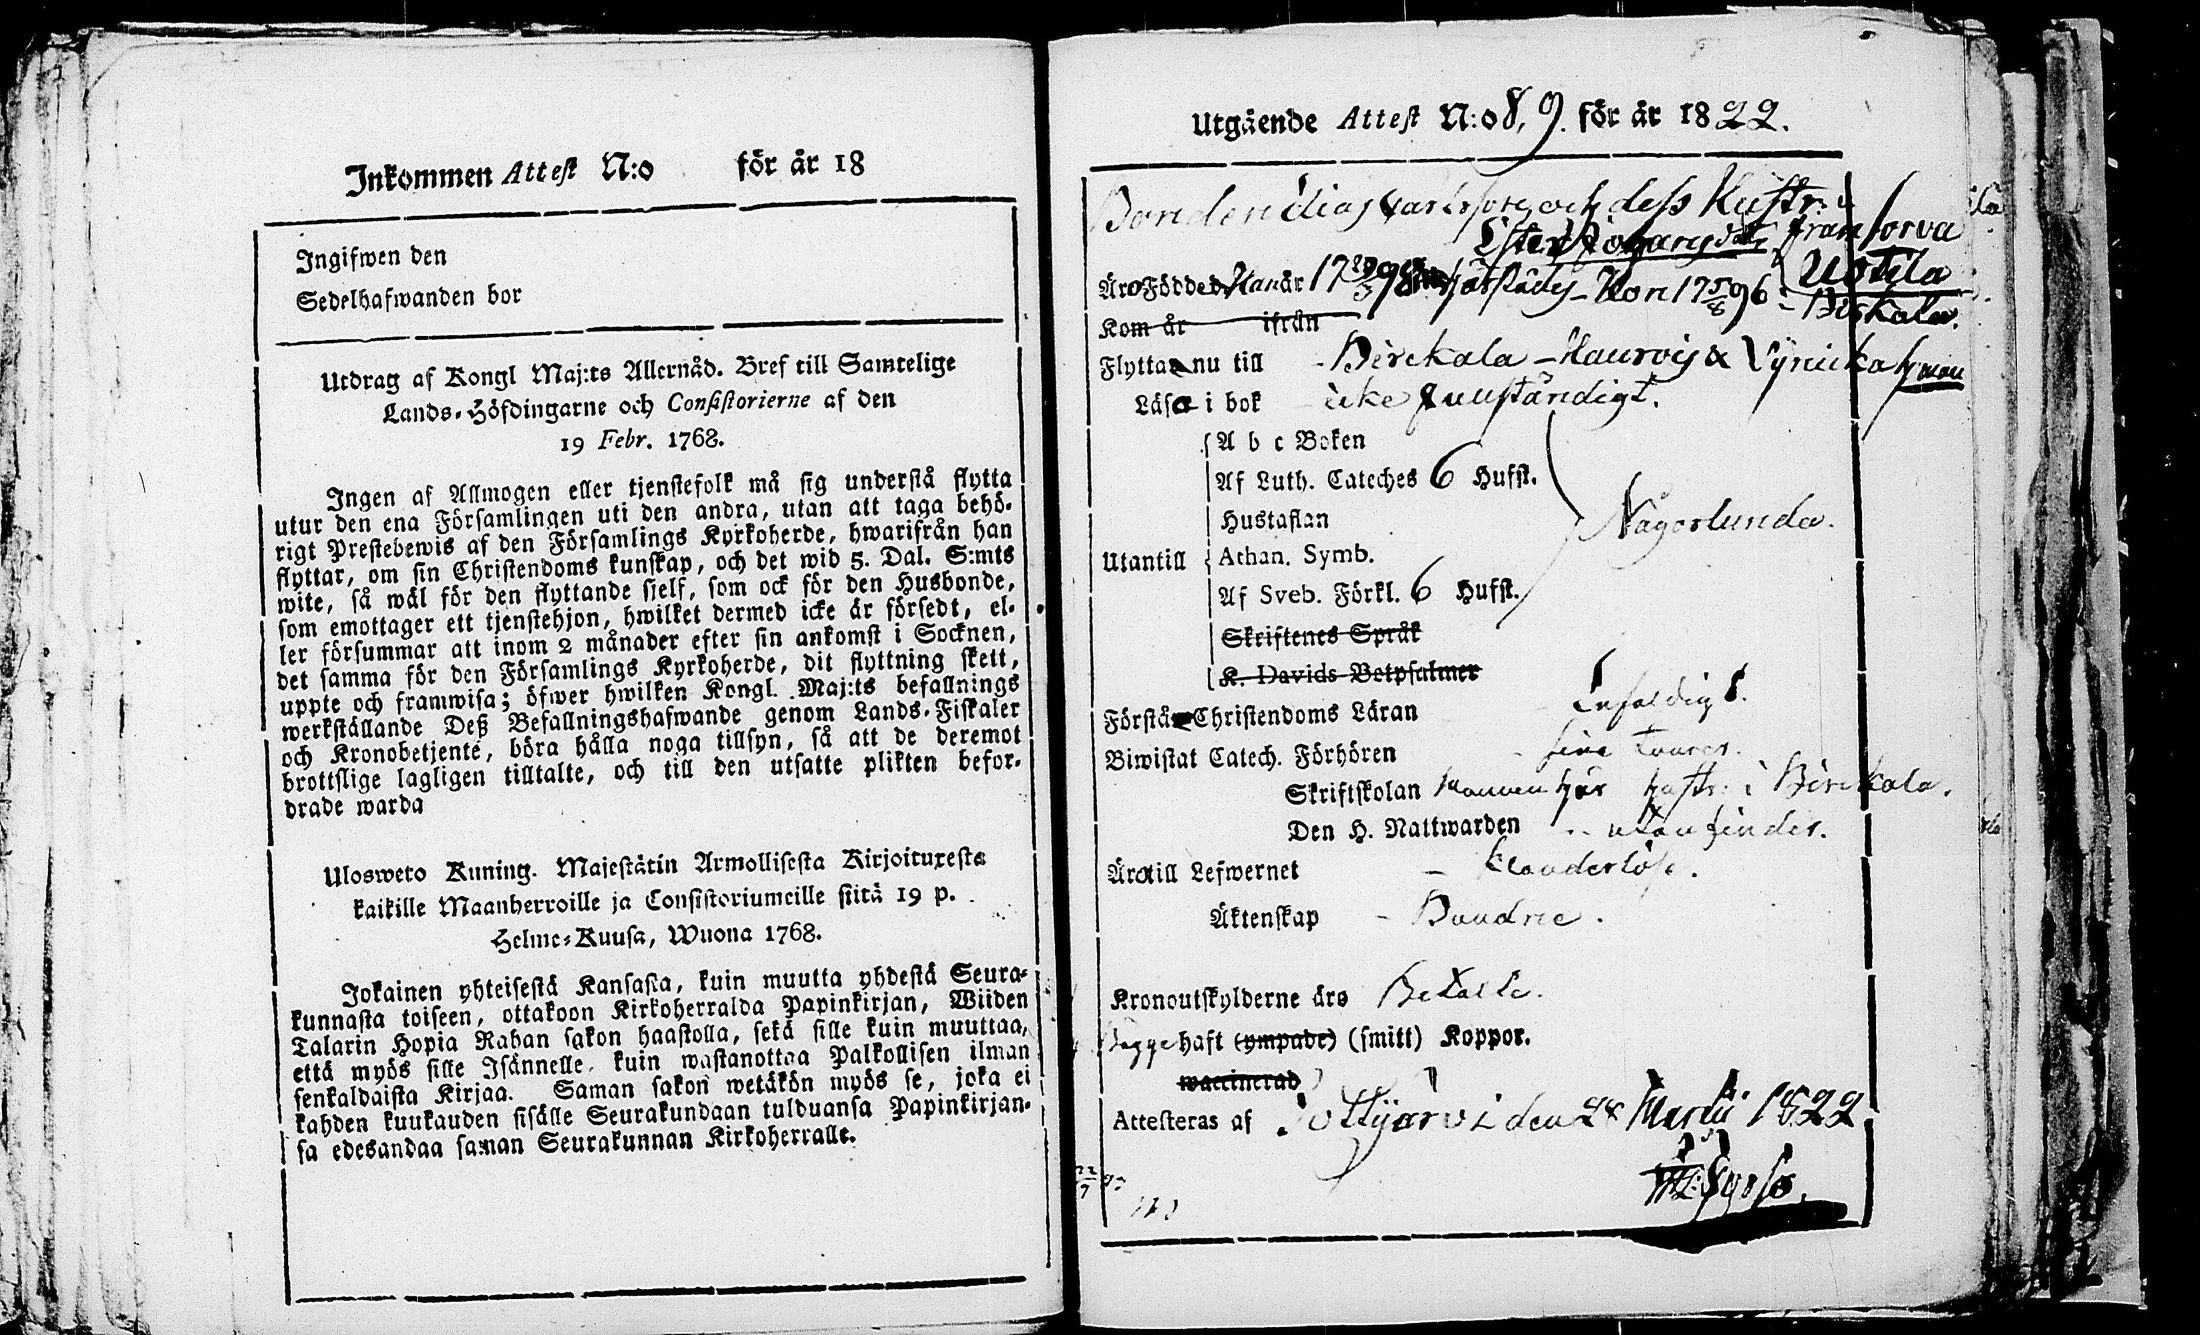 Inkommen Attest N:o för år 18
Ingifwen den
Sedelhafwanden bor
Utdrag af Kongl Maj:ts Allernåd. Bref till Samtelige
Lands-Höfdingarne och Consistorierne af den
19 Febr. 1768.
Ingen af Allmogen eller tjenstefolk må sig understå flytta
utur den ena Församlingen uti den andra, utan att taga behö-
rigt Prestebewis af den Församlings Kyrkoherde, hwarifrån han
flyttar, om sin Christendoms kunskap, och det wid 5. Dal. S:mts
wite, så wäl för den flyttande sjelf, som ock för den Husbonde,
som emottager ett tjenstehjon, hwilket dermed icke är försedt, el-
ler försummar att inom 2 månader efter sin ankomst i Socknen,
det samma för den Församlings Kyrkoherde, dit flyttning skett,
uppte och framwisa; öfwer hwilken Kongl. Maj:ts befallnings
werkställande Deß Befallningshafwande genom Lands-Fiskaler
och Kronobetjente, böra hålla noga tillsyn, så att de deremot
brottslige lagligen tilltalte, och till den utsatte plikten befor-
drade warda
Ulosweto Kuning. Majestätin Armollisesta Kirjoituxesta
kaikille Maanherroille ja Consistoriumeille siitä 19 p.
Helme-Kuusa, Wuona 1768.
Jokainen yhteisestä Kansasta, kuin muutta yhdestä Seura-
kunnasta toiseen, ottakoon Kirkoherralda Papinkirjan, Wiiden
Talarin Hopia Rahan sakon haastolla, sekä sille kuin muuttaa,
että myös sille Isännelle, kuin wastanottaa Palkollisen ilman
senkaldaista Kirjaa. Saman sakon wetäkön myös se, joka ei
kahden kuukauden sisälle Seurakundaan tulduansa Papinkirjan-
sa edesandaa saman Seurakunnan Kirkoherralle.
Utgående Attest N:o 8, 9. för år 1822.
Bonden och dess Hustru
från sorva
Äro Födde Han år 17 98 Hon 17 5/8 96 Uotila
Kom år ifrån Birkala.
Flytta nu till Birckala
Läsa i bok icke fullständigt.
A b c Boken
Af Luth. Cateches 6 Hufst.
Hustaflan
Någorlunda.
Utantill Athan. Symb.
Af Sveb. Förkl. 6 Hufst.
Skriftenes Språk
K. Davids Betpsalmer
Förstå Christendoms Läran Enfaldigt.
Biwistat Catech. Förhören sine
Skriftskolan Mannen här hustr: i Birckala.
Den H. Nattwarden utan hinder.
Äro till Lefwernet klanderlöse.
Äktenskap Bundne.
Kronoutskylderne äro Betalte.
Bägge haft (ympade) (smitt) Koppor.
waccinerad
Attesteras af Tottijärvi den 28 Martii 1822